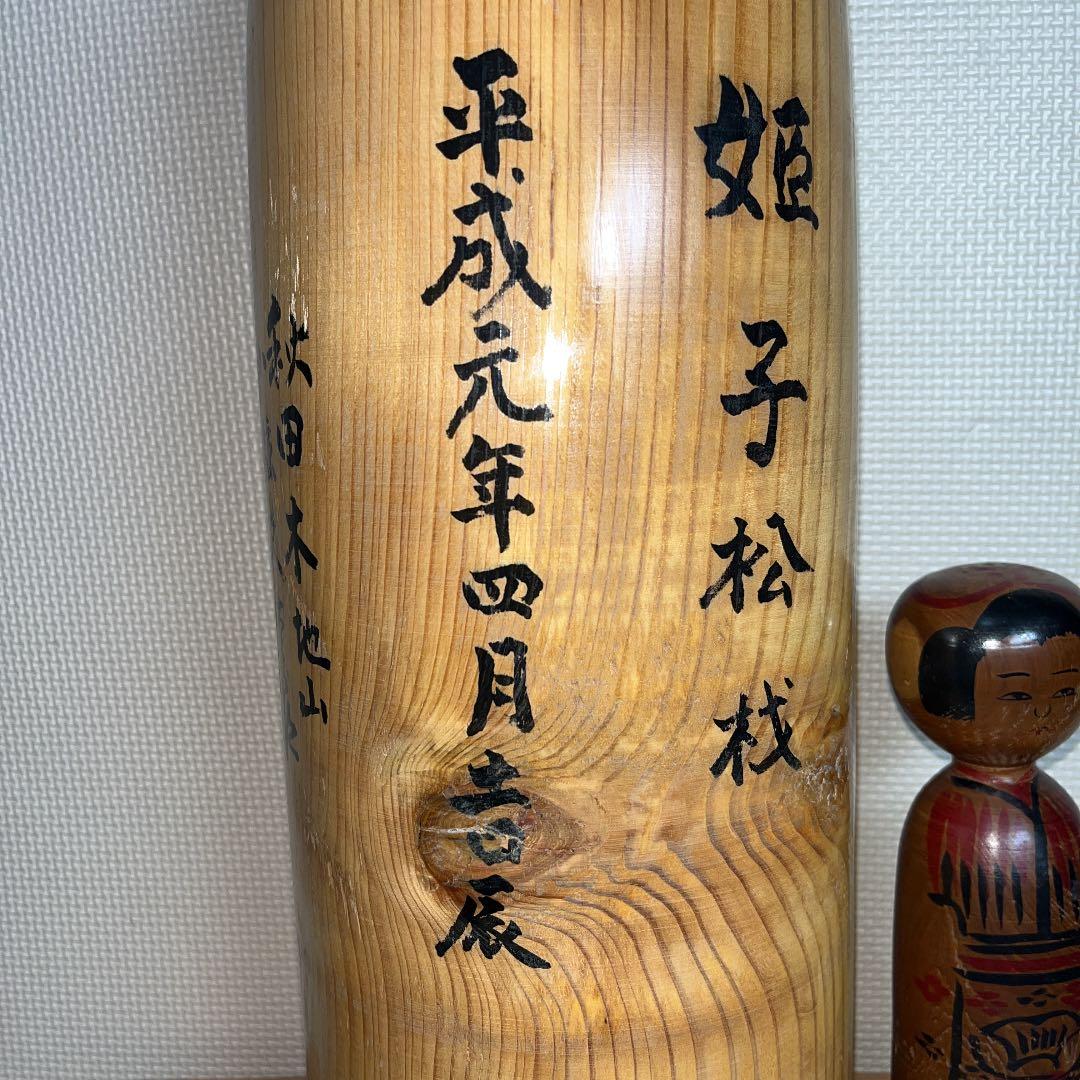 姫子松材
平成元年四月吉辰
秋田木地山